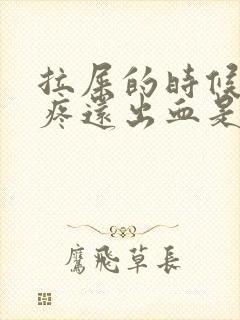 拉屎的时候
疼還出血是
鷹飛草長